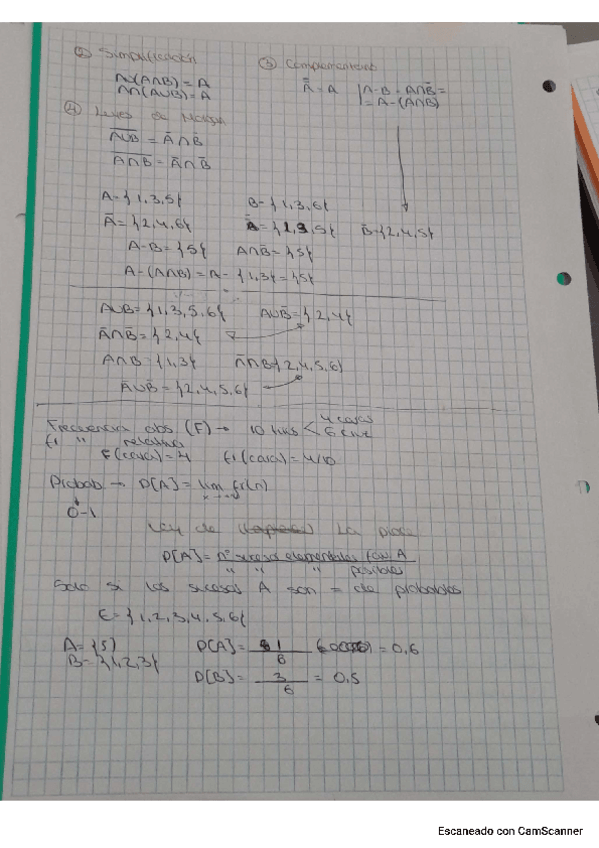 ② Simplificación
∩∪(A∩B) = A
∩∩(A∪B) = A
③ Complementario
A̿ = A
A-B = A∩B̅ =
= A-(A∩B)
④ Leyes de Morgan
A∪B̅ = A̅∩B̅
A∩B̅ = A̅∩B̅
A={1,3,5}
B={1,3,6}
A̅={2,4,6}
={1,3,5}
B̅={2,4,5}
A-B={5}
A∩B̅={5}
A-(A∩B)=A-{1,3}={5}
A∪B={1,3,5,6}
A∪B̅={2,4}
A̅∩B̅={2,4}
A∩B={1,3}
A̅∩B{2,4,5,6}
A̅∪B̅={2,4,5,6}
Frecuencia abs. (F) → 10 <
4 caras
6
fr " relativa
F(cara)=4 fr(cara)=4/10
Probab → P[A]= lim fr(n)
0-1
Ley de La place
P[A]= nº sucesos elementales A
" " " posibles
Solo si los sucesos A son = de probables
E={1,2,3,4,5,6}
A={5}
P[A]= 1/6 = 0,6
B={1,2,3}
P[B]= 3/6 = 0,5
Escaneado con CamScanner